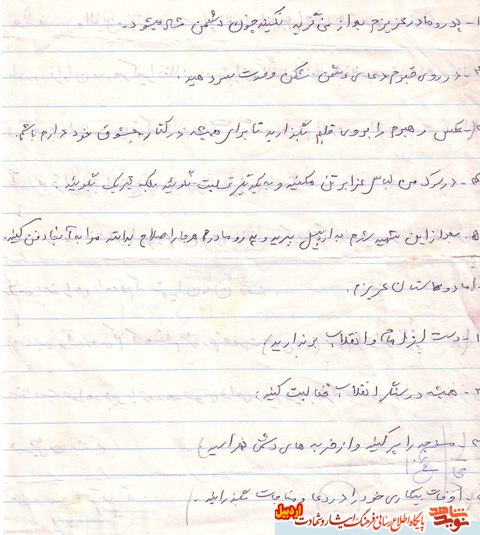 ۱- پدر و مادر عزیزم بعد از من گریه نکنید چون دشمن شاد میشود.
۲- در روی قبرم دعای دشمن شکن وحدت سر دهید.
۳- عکس رهبرم را بروی قلبم بگذارید تا برای همیشه در کنار معشوق خود دارم باشم.
۴- در مرگ من لباس عزا بر تن مکنید و به یکدیگر تسلیت نگوئید بلکه تبریک بگوئید.
۵- بعد از این شهید شدم به اردبیل ببرید و پدر و مادرم هر جا را صلاح بدانند مرا به آنجا دفن کنید.
اما دوستان عزیزم.
۱- دست از امام و انقلاب برندارید
۲- همیشه در سنگر انقلاب فعالیت کنید.
۳- مساجد را پر کنید و از ضربه های دشمن نهراسید
۴- اوقات بیکاری خود را در دعا و مناجات بگذرانید.
نوید شاهد
اردبیل
پایگاه اطلاع رسانی فرهنگ ایثار و شهادت